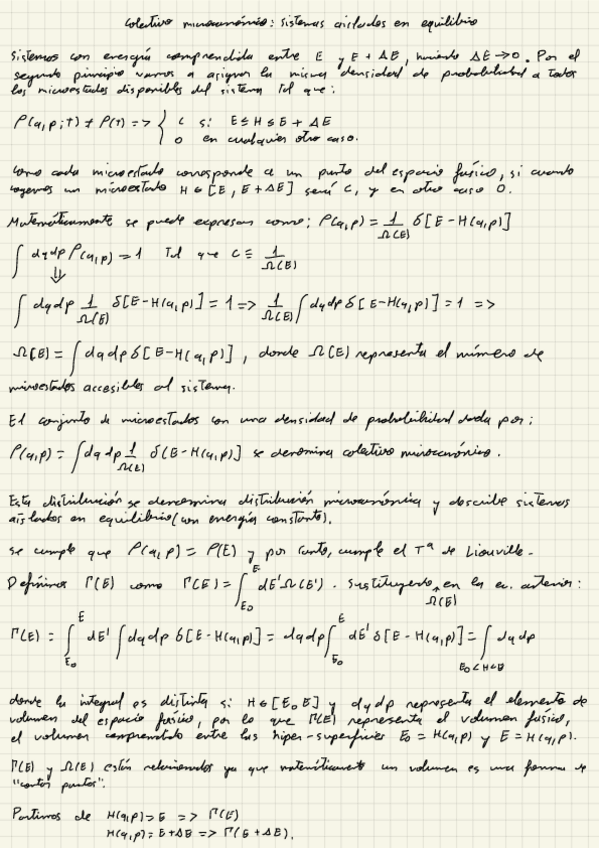 Colectivo microcanónico: sistemas aislados en equilibrio
Sistemas con energía comprendida entre E y E + ΔE, siendo ΔE → 0. Por el
segundo principio vamos a asignar la misma densidad de probabilidad a todos
los microestados disponibles del sistema tal que:
ρ(q,p;t) ≠ ρ(t) => { C si E ≤ H ≤ E + ΔE
0 en cualquier otro caso.
Como cada microestado corresponde a un punto del espacio fásico, si cuando
cogemos un microestado H ∈ [E, E+ΔE] será C, y en otro caso 0.
Matemáticamente se puede expresar como: ρ(q,p) = 1/Ω(E) δ[E-H(q,p)]
∫ dq dp ρ(q,p) = 1 tal que C ≡ 1/Ω(E)
⇓
∫ dq dp 1/Ω(E) δ[E-H(q,p)] = 1 => 1/Ω(E) ∫ dq dp δ[E-H(q,p)] = 1 =>
Ω(E) = ∫ dq dp δ[E-H(q,p)], donde Ω(E) representa el número de
microestados accesibles al sistema.
El conjunto de microestados con una densidad de probabilidad dada por:
ρ(q,p) = ∫ dq dp 1/Ω(E) δ[E-H(q,p)] se denomina colectivo microcanónico.
Esta distribución se denomina distribución microcanónica y describe sistemas
aislados en equilibrio (con energía constante).
Se cumple que ρ(q,p) = ρ(E) y por tanto, cumple el Tª de Liouville.
Definimos Γ(E) como Γ(E) = ∫_{E₀}^{E} dE' Ω(E'). Sustituyendo Ω(E) en la ec. anterior:
Γ(E) = ∫_{E₀}^{E} dE' ∫ dq dp δ[E-H(q,p)] = dq dp ∫_{E₀}^{E} dE' δ[E-H(q,p)] = ∫_{E₀<H<E} dq dp
donde la integral es distinta si H ∈ [E₀ E] y dq dp representa el elemento de
volumen del espacio fásico, por lo que Γ(E) representa el volumen fásico,
el volumen comprendido entre las hiper-superficies E₀ = H(q,p) y E = H(q,p).
Γ(E) y Ω(E) están relacionados ya que matemáticamente un volumen es una forma de
"contar puntos".
Partimos de H(q,p) = E => Γ(E)
H(q,p) = E+ΔE => Γ(E+ΔE).